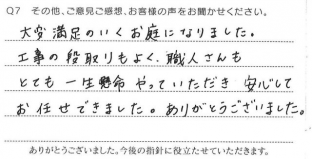 Q7 その他、ご意見ご感想、お客様の声をお聞かせください。
大変満足のいくお庭になりました。
工事の段取りもよく、職人さんも
とても一生懸命やっていただき安心して
お任せできました。ありがとうございました。
ありがとうございました。今後の指針に役立たせていただきます。